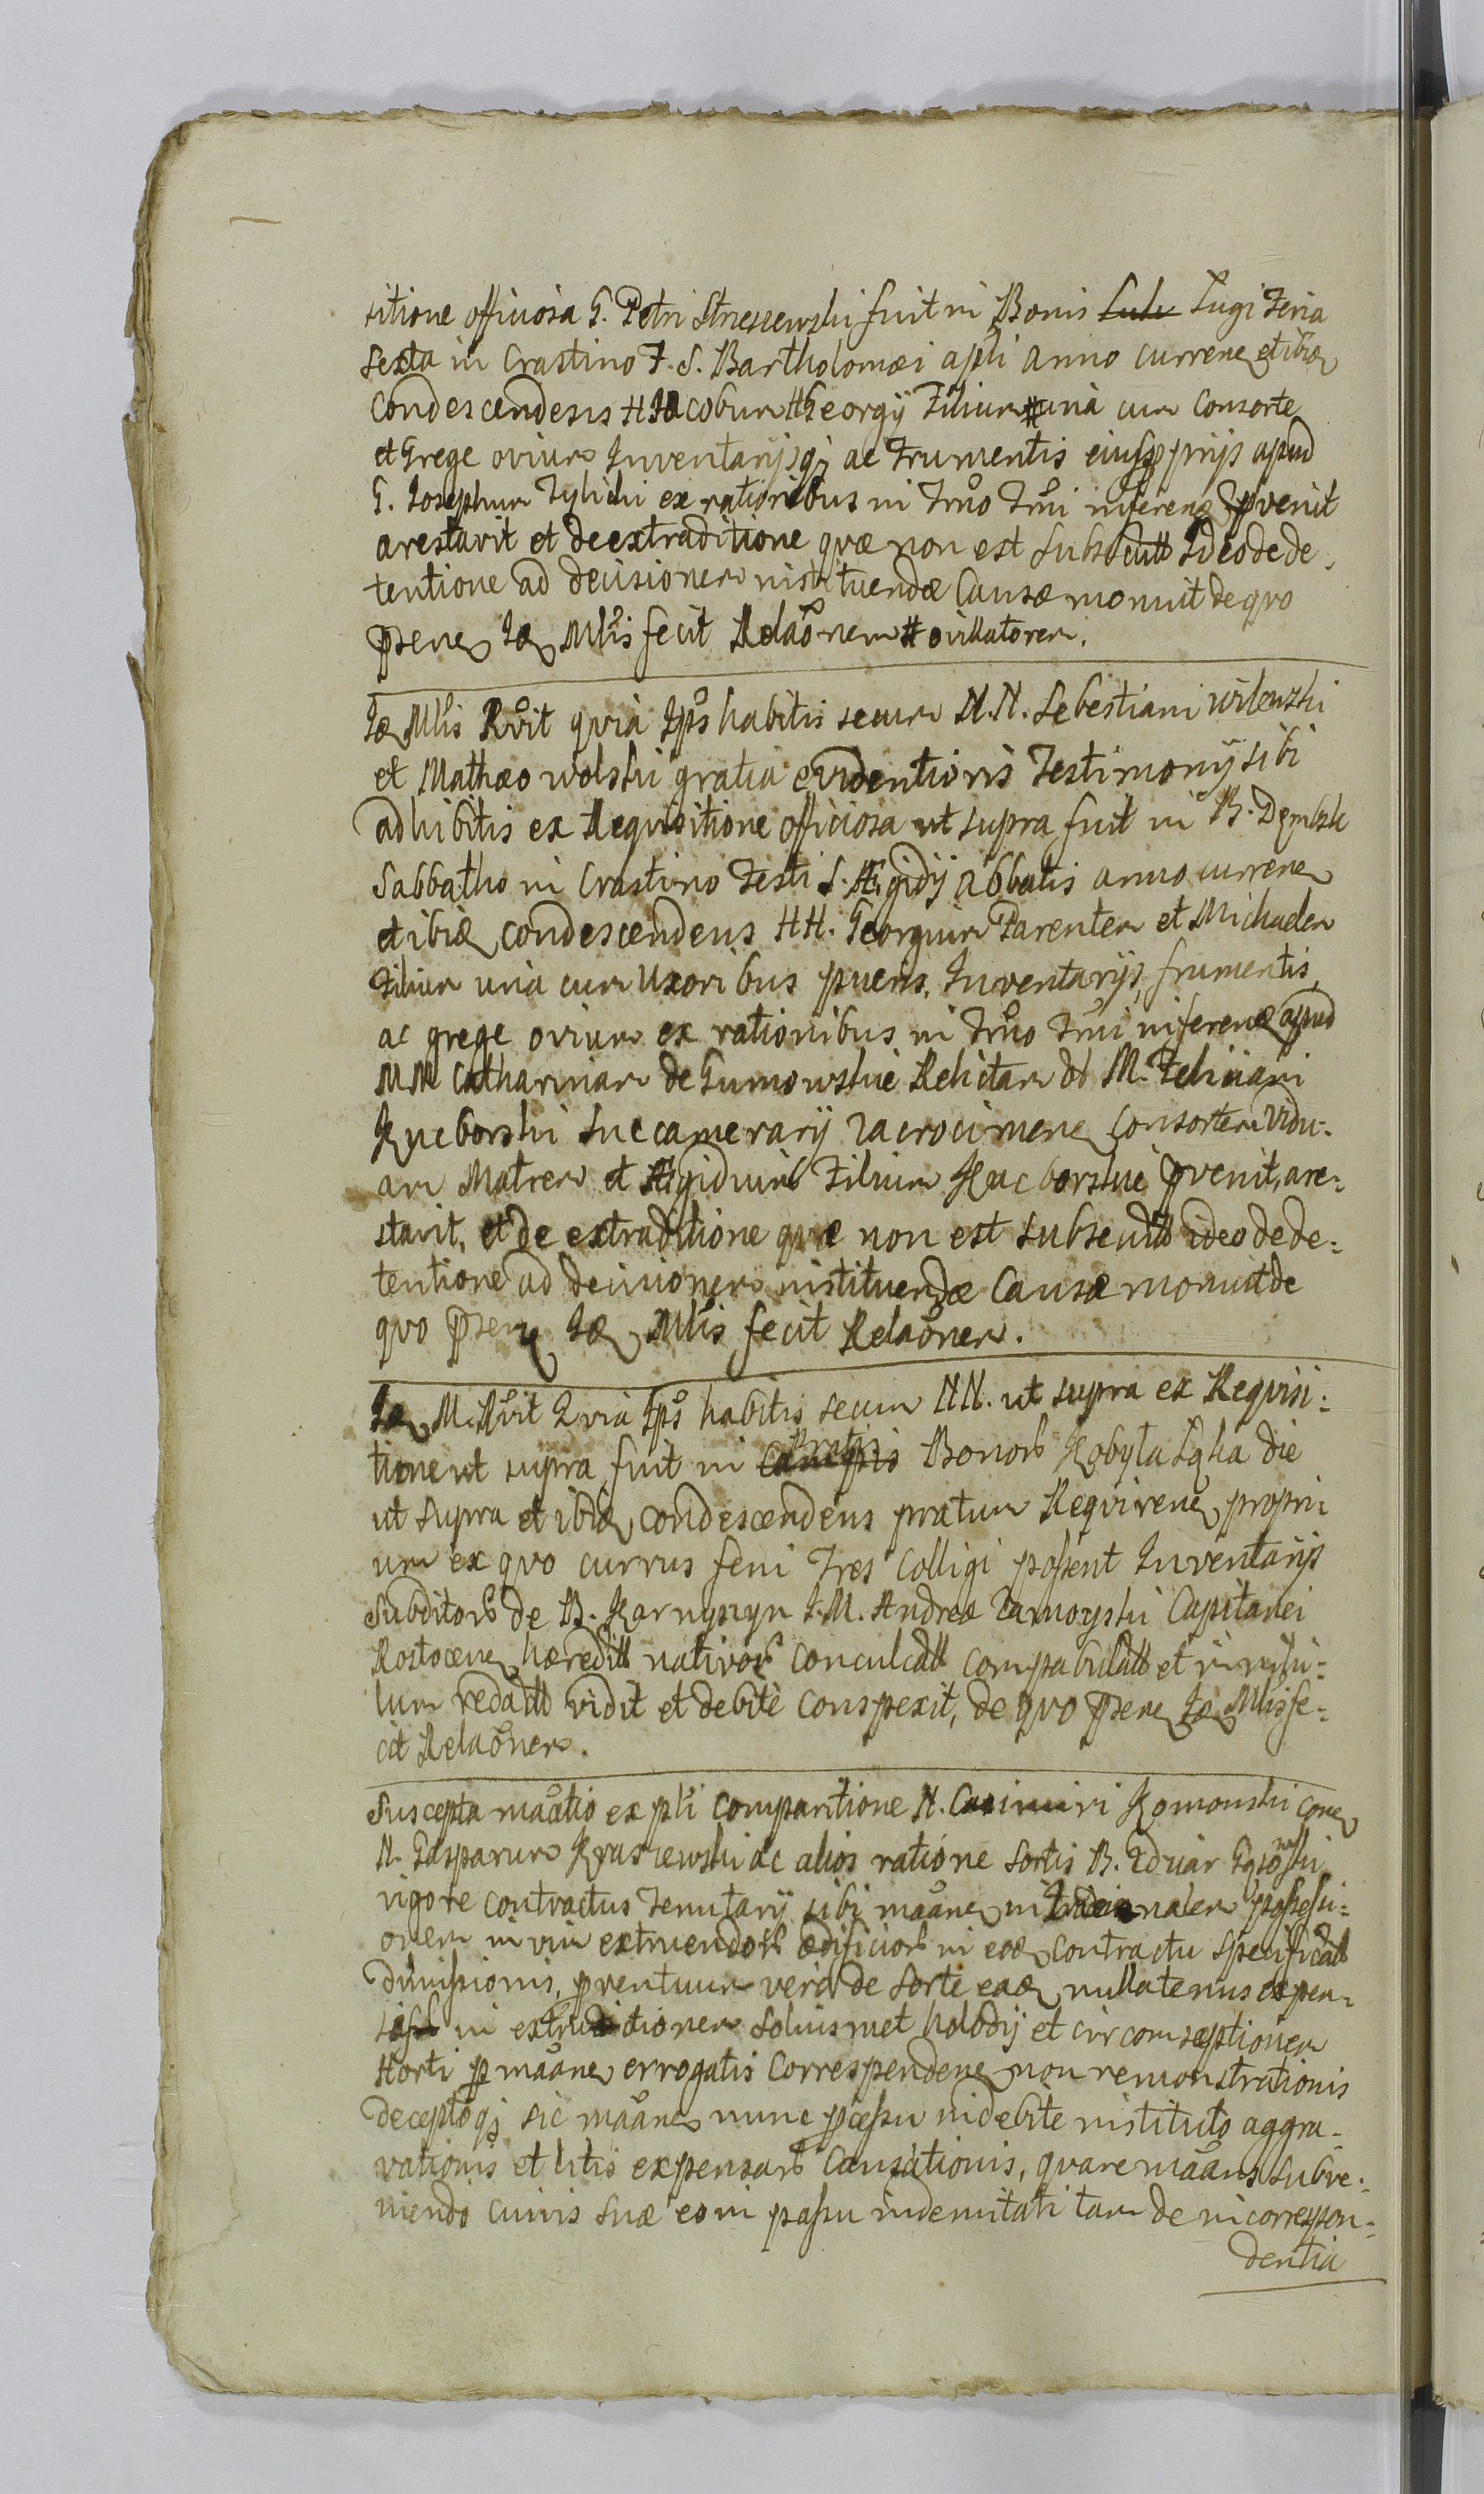 sitione officiosa G. Petri Strzeszewski fuit in Bonis Lulu Lugi Feria
sexta in Crastino F. S. Bartholomæi apli anno curren et ibid
condescendens H Jacobum H Georgij Filium # unà cum Consorte
et Grege ovium Inventarijsq; ac Frumentis eiusd pprijs apud
G. Josephum Tylicki ex rationibus in Trno Trni inferen pvenit
arestavit et de extraditione quæ non est subsecutt Ideo de de-
tentione ad decisionem instituendæ Causæ monuit de quo
psene Id Mlis fecit Relaõnem # ovillatorem.
Id Mlis Rvit quià Ips habitis secum N.N. Sebestiani Wilewski
et Mathæo Wolski gratia evidentioris Testimonij sibi
adhibitis ex Requisitione officiosa ut supra fuit in B. Dembsk
Sabbatho in Crastino Festi S. Ægidij Abbatis anno curren
et ibid condescendens HH. Georgium Parentem et Michaelem
Filium una cum Uxoribus pueris, Inventarijs, frumentis,
ac grege ovium ex rationibus in Trno Trni inferen apud
MM Catharinam de Gumowskie Relictam ol M. Feliciani
Kucborski Succamerarij Zacrocimen Consortem Vidu-
am Matrem et Ægidium Filium Kucborskie pvenit, are-
stavit, et de extraditione quæ non est subsecutt ideo de de-
tentione ad decisionem instituendæ Causæ monuit de
quo psene Id Mlis fecit Relaõnem.
Id M. Rvit Quià Ips habitis secum NN. ut supra ex Requisi-
tione ut supra fuit in Campis Pratis Bonor Kobyla Łąka die
ut supra et ibid condescendens pratum Requiren propri
um ex quo currus feni Tres colligi possent Inventarijs
Subditor de B. Karnyszyn I. M. Andreæ Zamoyski Capitanei
Rostocen hæreditt nativor conculcatt compabulatt et in nihi-
lum redactt vidit et debitè conspexit, de quo psene Id Mlis fe-
cit Relaõnem.
Suscepta maãtio ex pli comparitione N. Casimiri Komonski con
N. Gasparum Kraszewski ac alios ratione sortis B. Zdviar Gąsowski
vigore contractus Tenutarij sibi maãne in possessi-
onem in vim extruendor ædificior in eod contractu specificatt
dimissionis, pventuum verò de sorte ead nullatenus expen-
in extruditionem soliusmet holodij et circomseptionem
Horti p maãne errogatis Correspenden non remonstrationis
deceptoq; sic maãne nunc pcessu indebite instituto aggra-
vationis et litis expensar Causationis, quare maãns subve-
niendo cuivis suæ eo in passu indemitati tam de incorrespon-
dentia